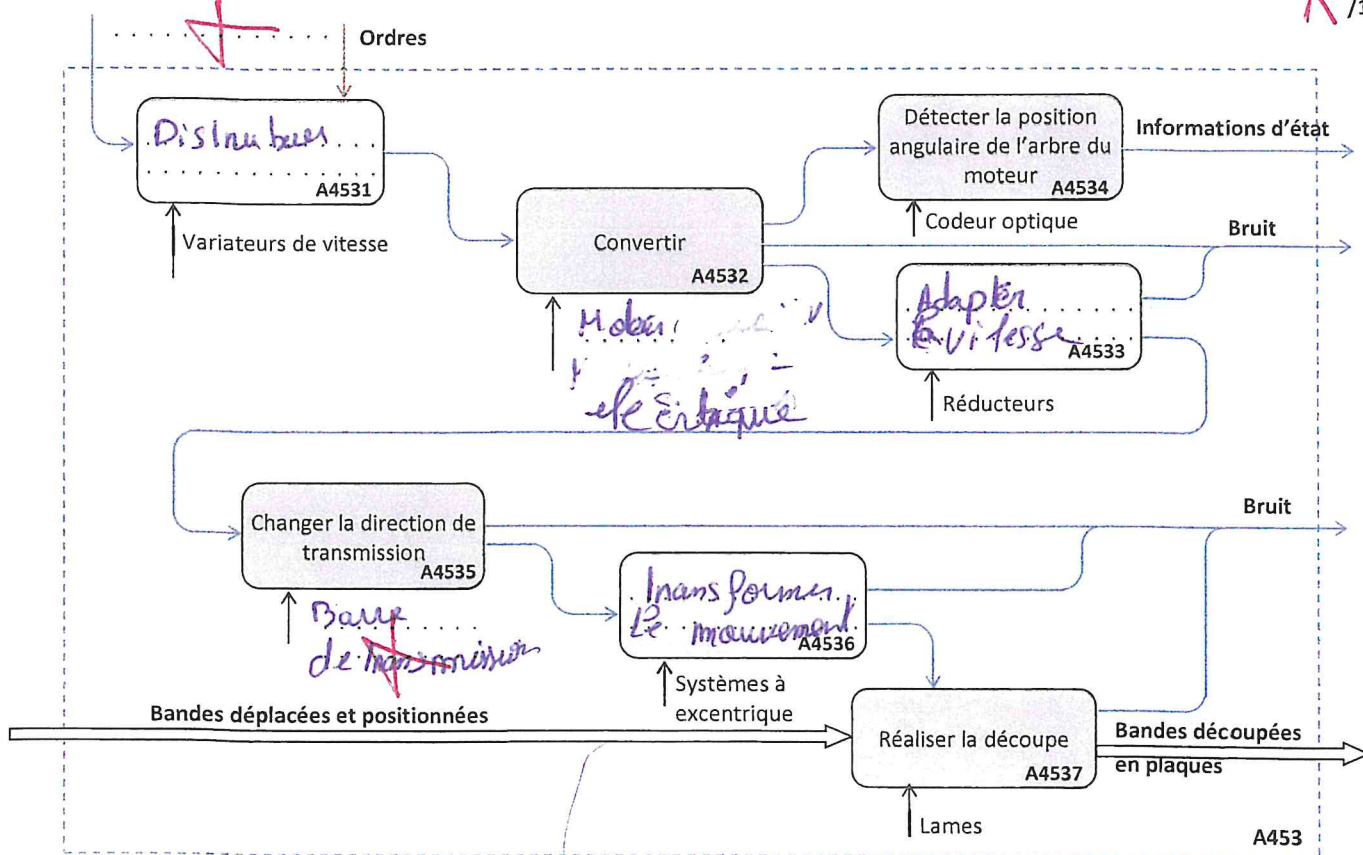 /1
Ordres
Distribuer
A4531
Variateurs de vitesse
Convertir
A4532
Moteur
électrique
Détecter la position
angulaire de l'arbre du
moteur
A4534
Codeur optique
Informations d'état
Bruit
Adapter
la vitesse
A4533
Réducteurs
Changer la direction de
transmission
A4535
Barre
de transmission
Bruit
Transformer
Le mouvement
A4536
Systèmes à
excentrique
Bandes déplacées et positionnées
Réaliser la découpe
A4537
Lames
Bandes découpées
en plaques
A453